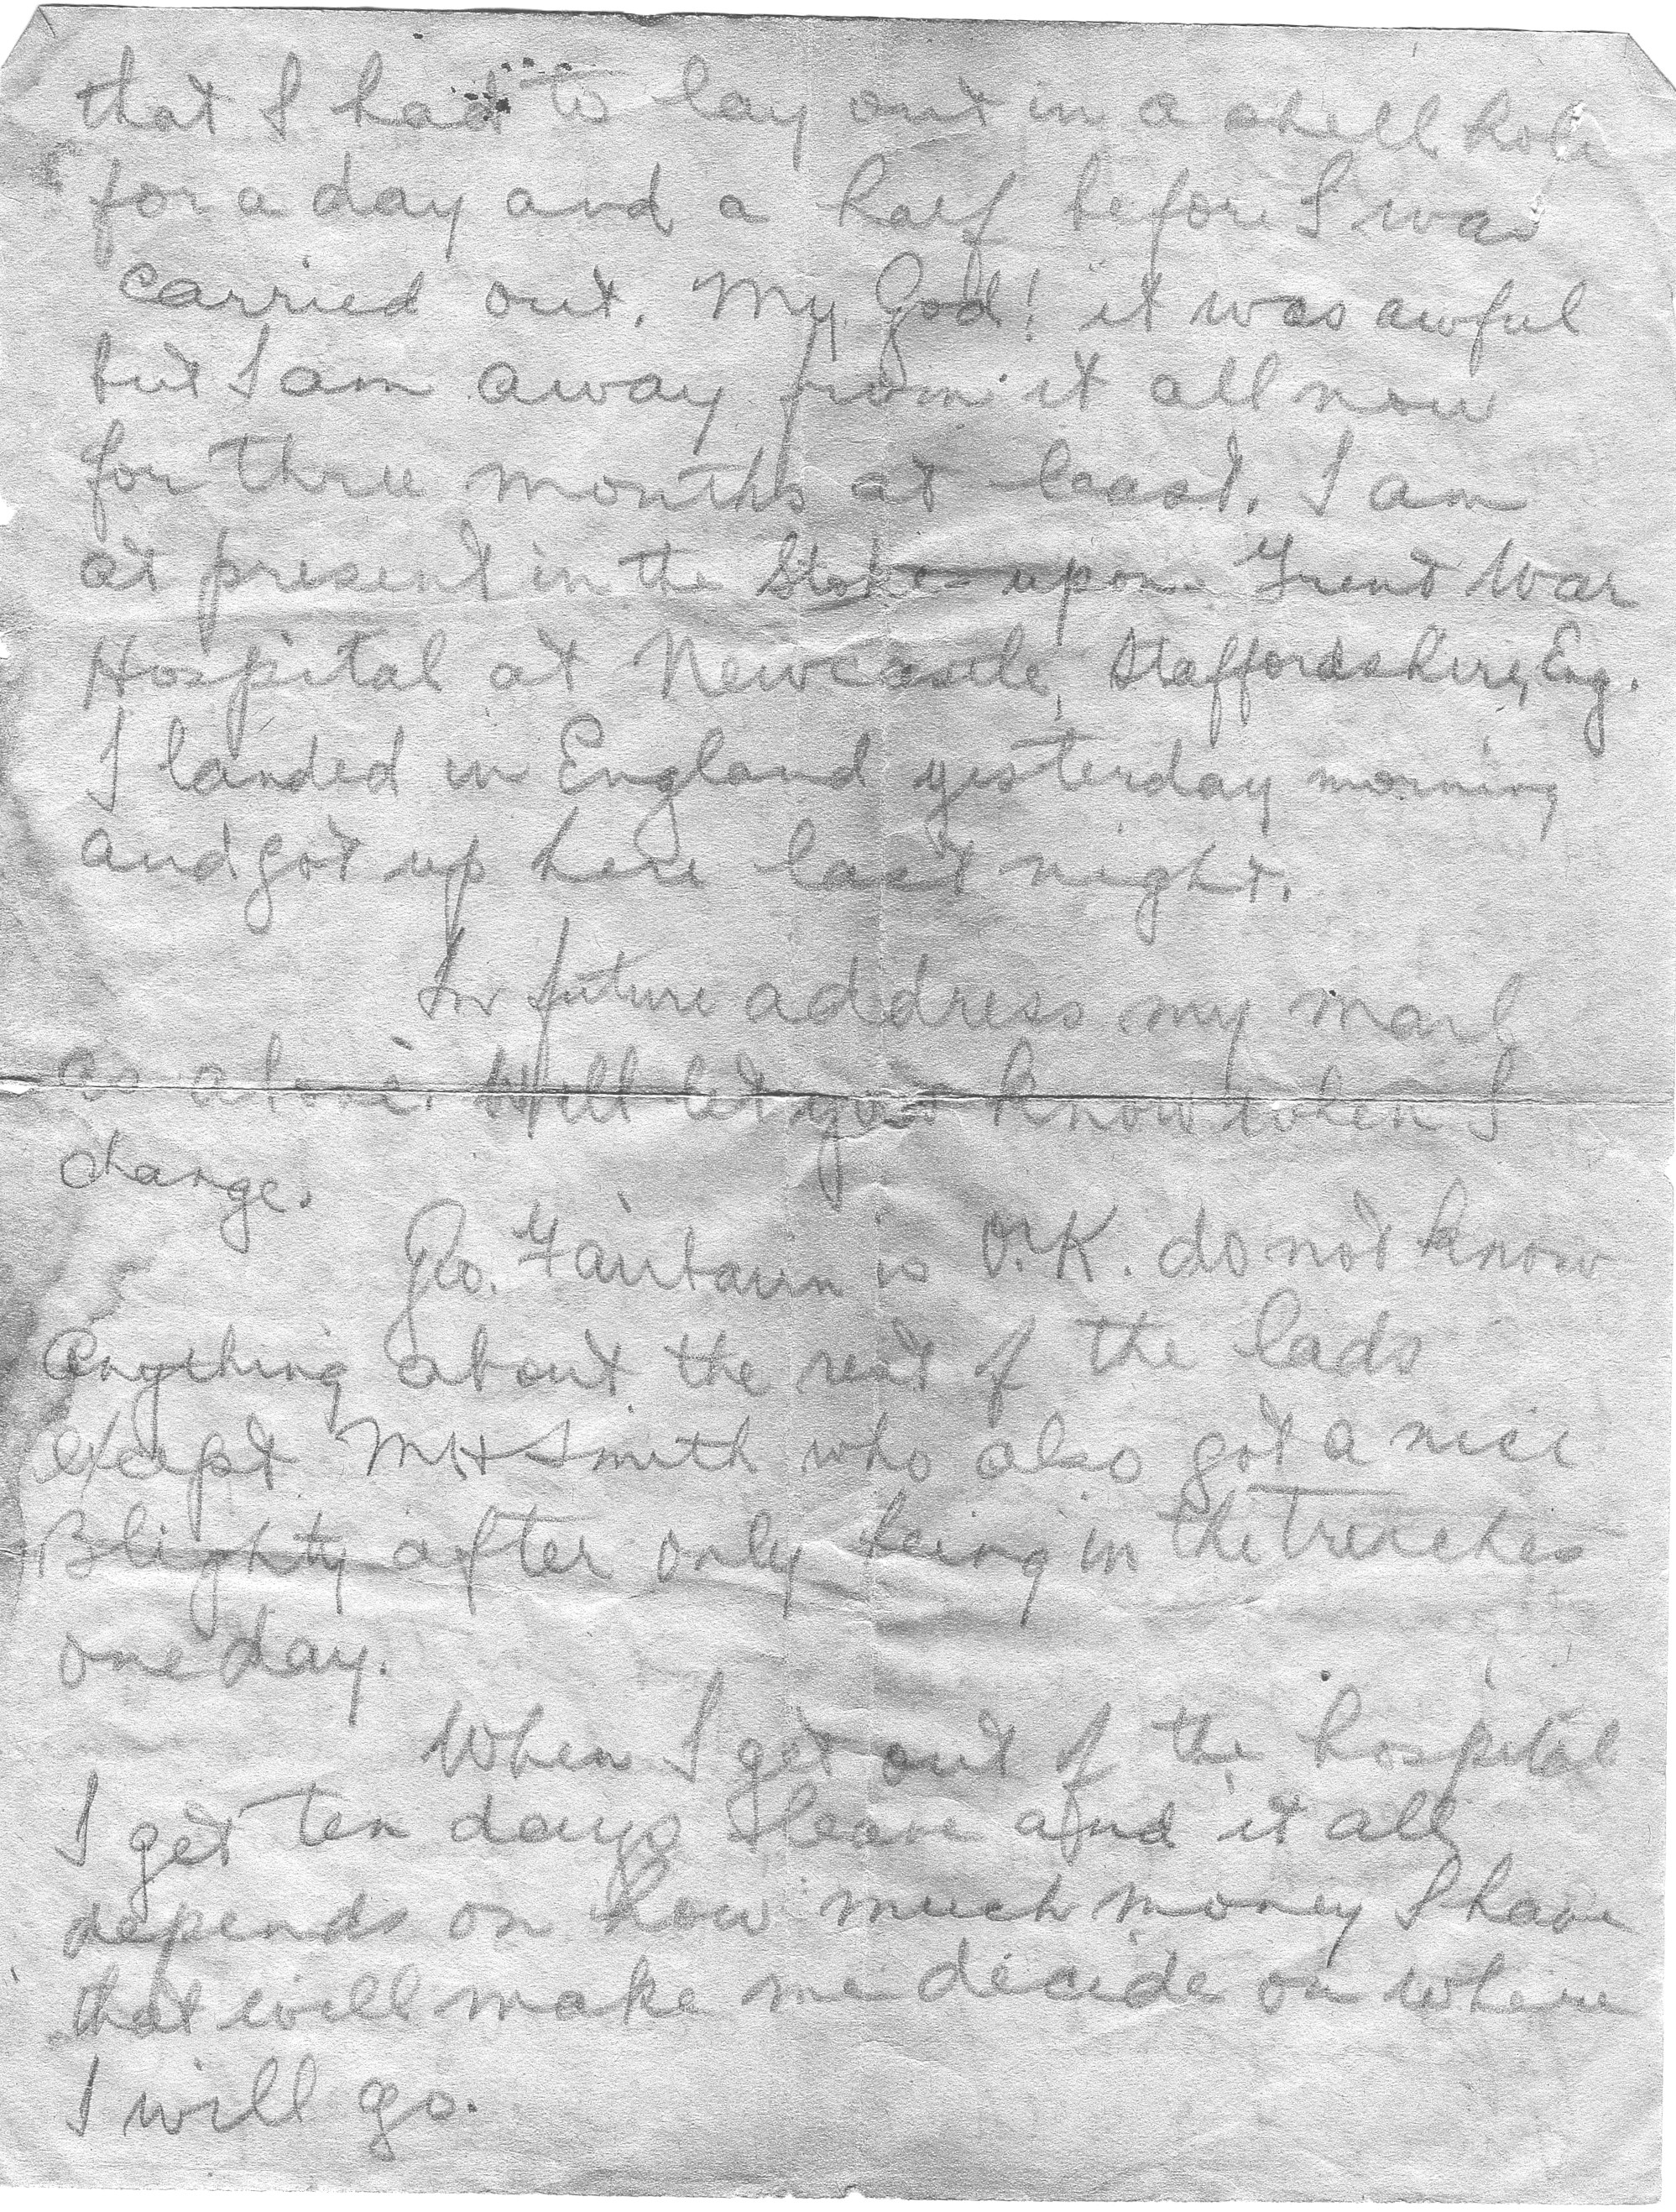 that I had to lay out in a shell hole
for a day and a half before I was
carried out. My God! it was awful
but I am away from it all now
for three months at least. I am
at present in the Stoke upon Trent War
Hospital at Newcastle, Staffordshire, Eng.
I landed in England yesterday morning
and got up here last night.
In future address my mail
as above. Will let you know when I
change.
Geo. is O.K. do not know
anything about the rest of the lads
except M H Smith who also got a nice
Blighty after only being in the trenches
one day.
When I get out of the hospital
I get ten days leave and it all
depends on how much money I have
that will make me decide on where
I will go.